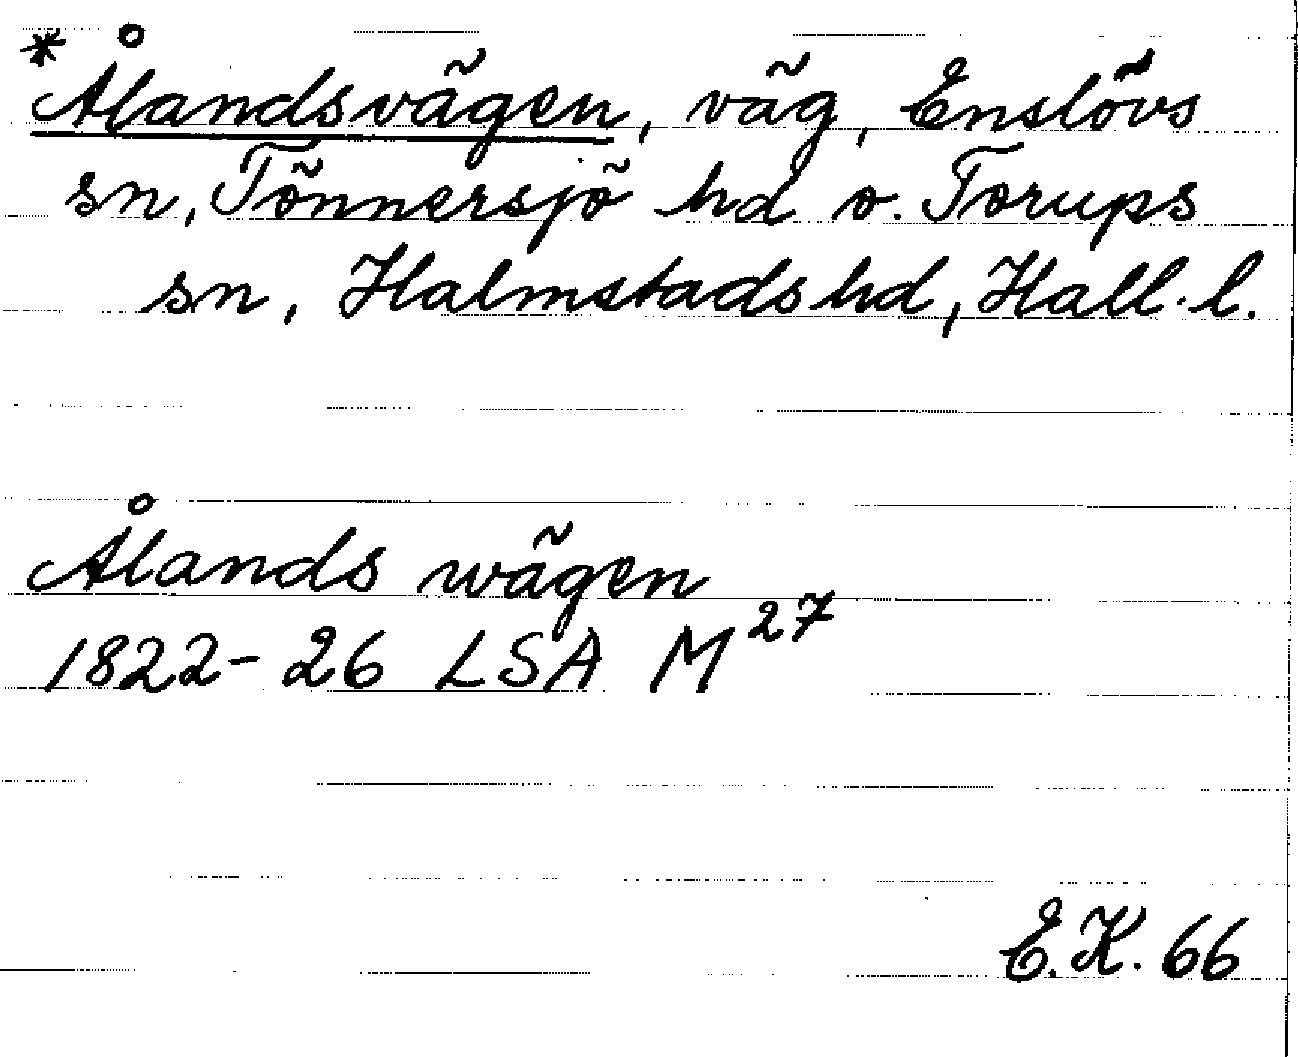 *Ålandsvägen, väg, Enslövs
sn, Tönnersjö hd o. Torups
sn, Halmstads hd, Hall. l.
Ålands wägen
1822-26 LSA M²⁷
E.K. 66